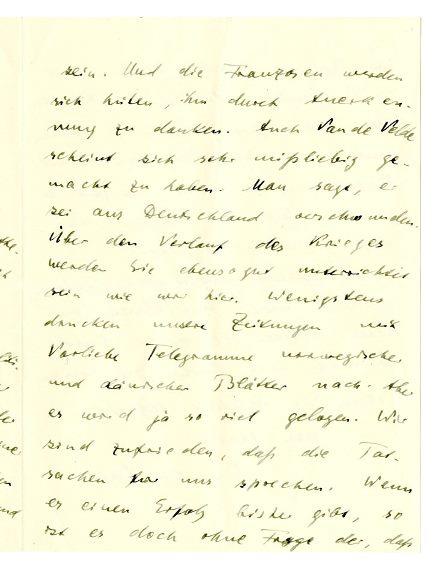 sein. Und die Franzosen werden
sich hüten, ihm durch Anerken-
nung zu danken. Auch Van de Velde
scheint sich sehr mißliebig ge-
macht zu haben. Man sagt, er
sei aus Deutschland verschwunden.
Über den Verlauf des Krieges
werden Sie ebensogut unterrichtet
sein wie wir hier. Wenigstens
drucken unsere Zeitungen mit
Vorliebe Telegramme norwegischer
und dänischer Blätter nach. Aber
es wird ja so viel gelogen. Wir
sind zufrieden, daß die Tat-
sachen für uns sprechen. Wenn
es einen Erfolg bisher gibt, so
ist es doch ohne Frage der, daß